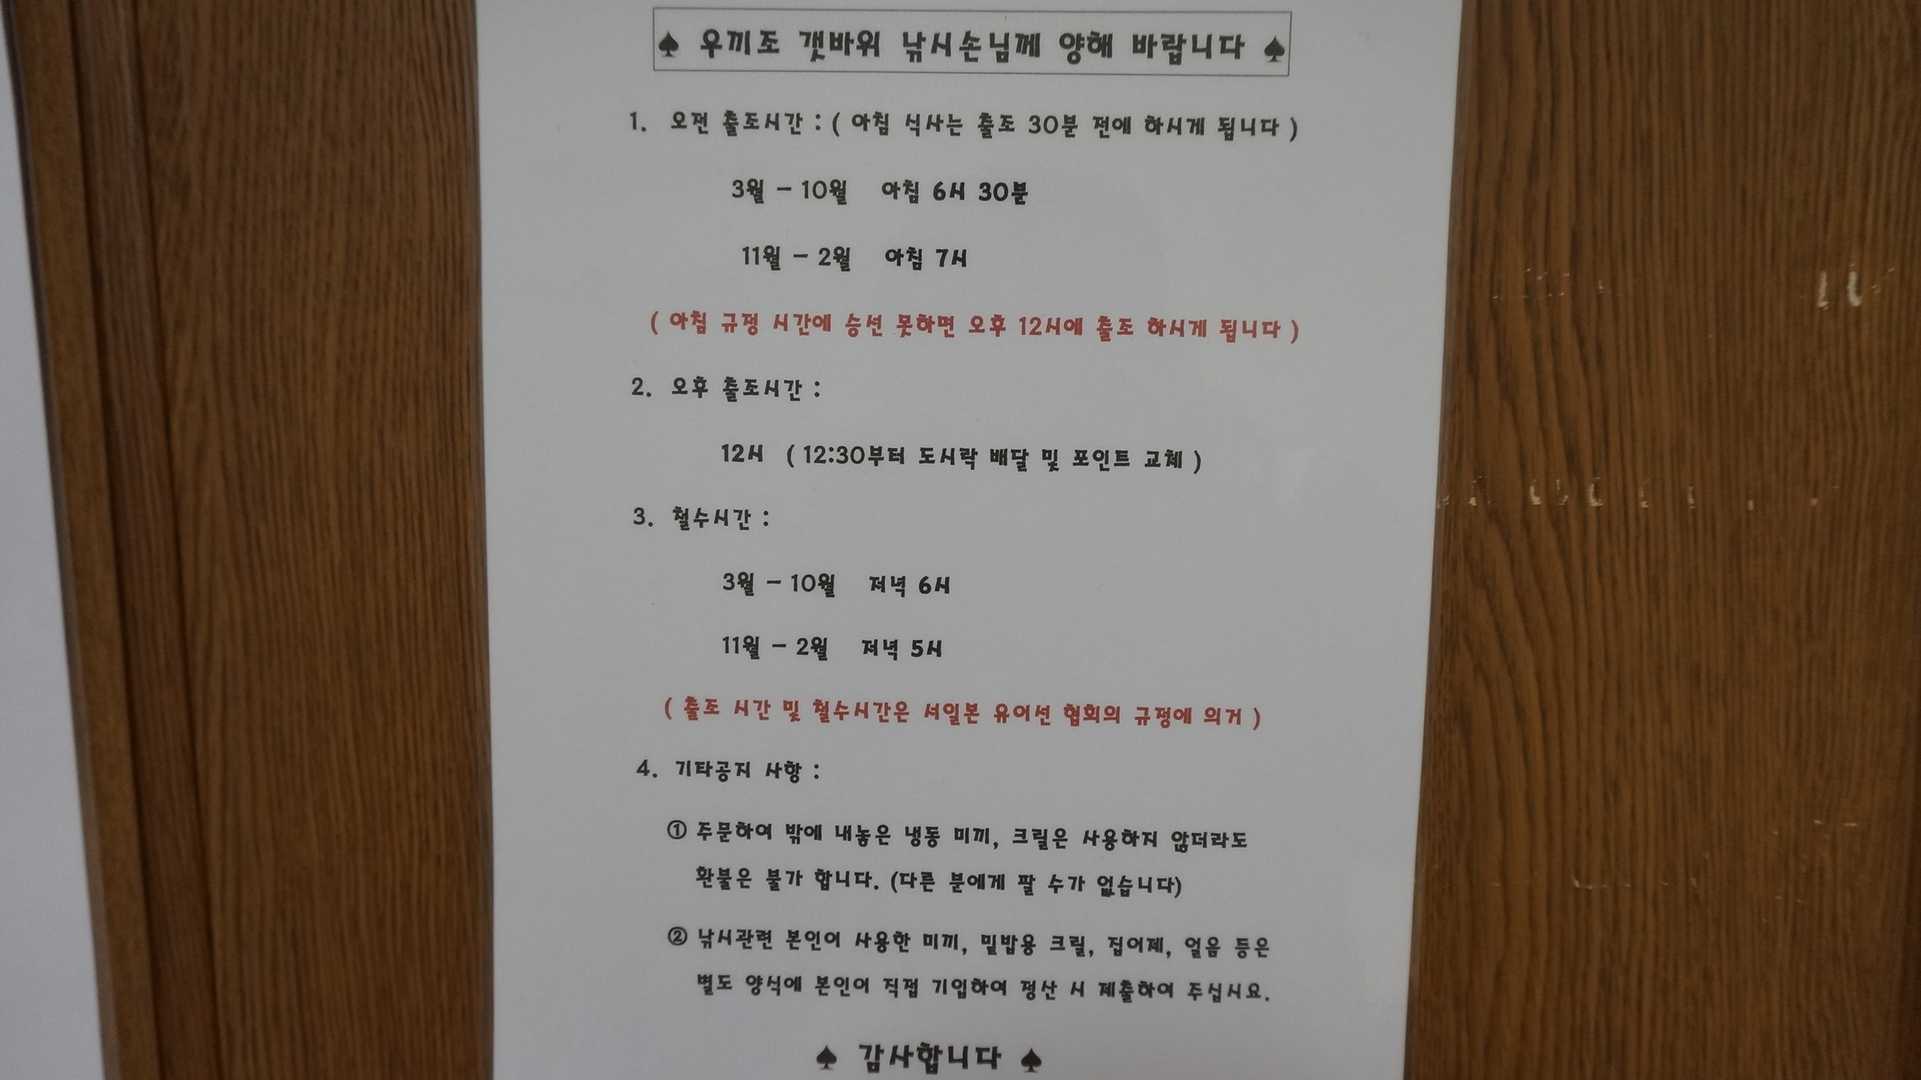 ♠ 우끼조 갯바위 낚시손님께 양해 바랍니다 ♠
1. 오전 출조시간 : ( 아침 식사는 출조 30분 전에 하시게 됩니다 )
3월 – 10월 아침 6시 30분
11월 – 2월 아침 7시
( 아침 규정 시간에 승선 못하면 오후 12시에 출조 하시게 됩니다 )
2. 오후 출조시간 :
12시 ( 12:30부터 도시락 배달 및 포인트 교체 )
3. 철수시간 :
3월 – 10월 저녁 6시
11월 – 2월 저녁 5시
( 출조 시간 및 철수시간은 서일본 유어선 협회의 규정에 의거 )
4. 기타공지 사항 :
① 주문하여 밖에 내놓은 냉동 미끼, 크릴은 사용하지 않더라도
환불은 불가 합니다. (다른 분에게 팔 수가 없습니다)
② 낚시관련 본인이 사용한 미끼, 밑밥용 크릴, 집어제, 얼음 등은
별도 양식에 본인이 직접 기입하여 정산 시 제출하여 주십시요.
♠ 감사합니다 ♠